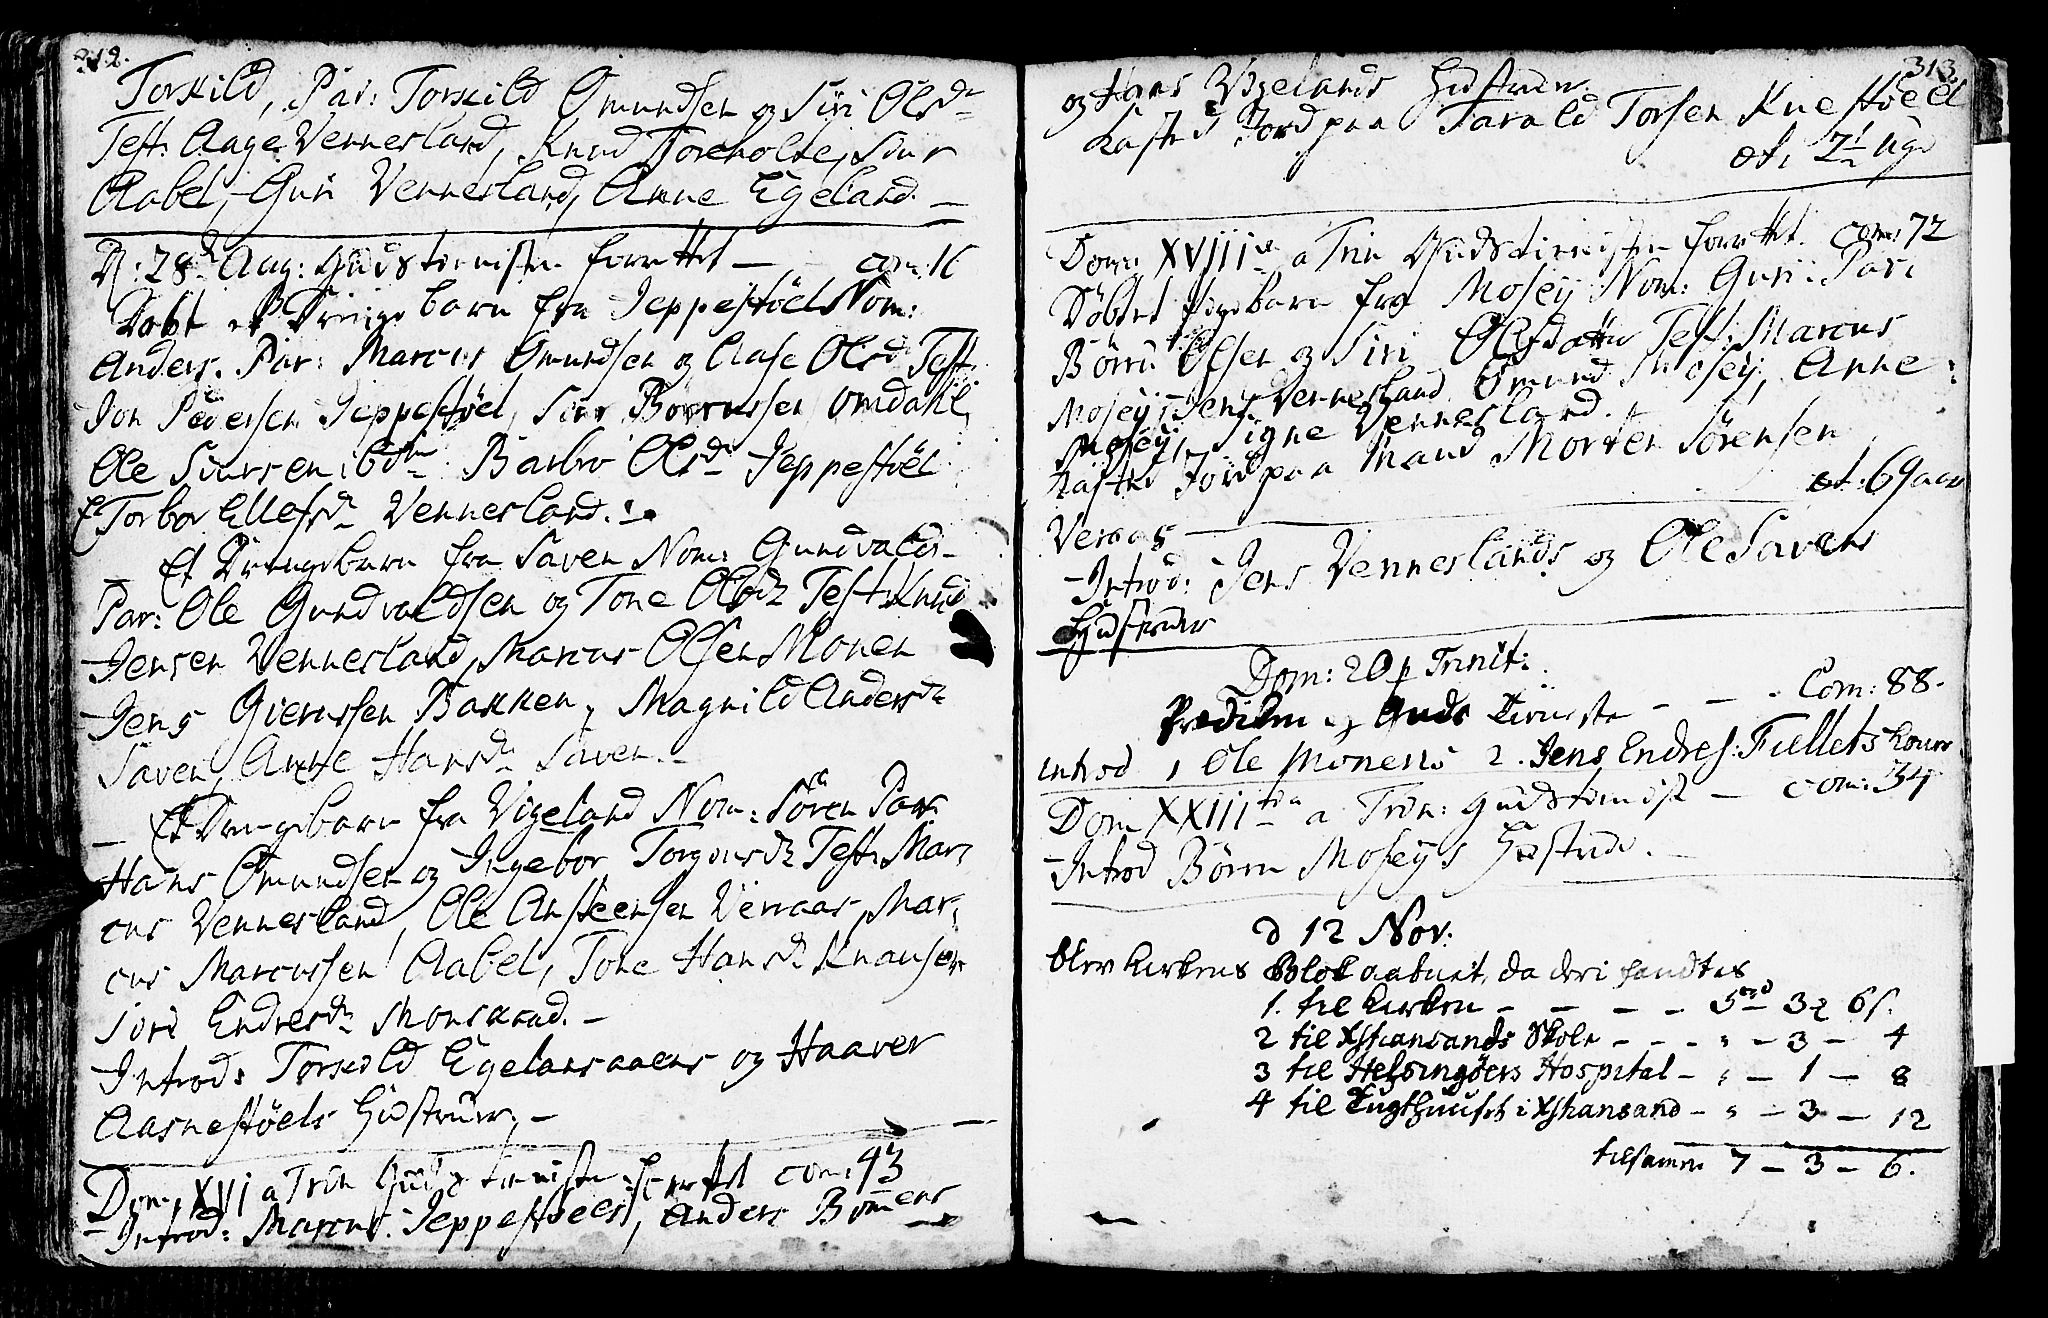 312.
Torkild, Par: Torkild Omundsen og Siri Olsdr
Test: Aage Vennesland, Knud Toreholte, Siur
Aabel, Guri Vennesland, Anne Egeland. —
D: 28de Aug: Gudstienisten forrettet — com: 16
Døbt et Drenge barn fra Jeppestøel Nom:
Anders. Par: Marcus Omundsen og Aase Olsd. Test.
Jon Pedersen Jeppestøel, Siur Børrussen Omdahl,
Ole Siursen ibdm Barbro Olsdr Jeppestøel
Torbor Ellefsdr Vennesland.
Et Drengebarn fra Saven Nom: Gundvald
Par: Ole Gundvaldsen og Tone Olsdr Test: Knud
Jensen Vennesland, Marcus Olsen Monen
Jens Gierussen Bakken, Magnild Andersdr
Saven, Anne Hansdr Saven. —
— Et Drengebarn fra Vigeland Nom: Søren Par:
Hans Omundsen og Ingebor Torgiersdr Test: Mar:
cus Vennesland, Ole Ansteensen Verraas, Mar:
cus Marcussen Aabel, Tone Hansdr Knausen
Siri Endresdr Monskard. —
Introd: Torkild Egelansaaens og Haaver
Aasnestøels Hustruer. —
Dom: XVI a Trin Gudstienisten forrettet com: 43
— Introd: Marcus Jeppestøels, Anders Bommens
313.
og Hans Vigelands Hustruer.
Kastet Jord paa Tarald Torsen Knestøel
æt: 2½ uge
Dom: XVIII a Trin Gudstienisten forrettet. com: 72
Døbt et Pigebarn fra Mosey Nom: Guri. Par:
Børru Olsen og Siri Olsdatter Test: Marcus
Mosey, Jens Vennesland Omund Mosey, Anne
Mosey, Signe Vennesland.
Kastet Jord paa Mand Morten Sørensen
Veraas — æt: 69 aar
— Introd: Jens Venneslands og Ole Savens
Hustruer
Dom: 20 p Trinit:
Prædiken og Guds Tieneste — — — Com: 88.
introd 1 Ole Monens 2. Jens Endres: Fiellets koner
Dom XXIII a Trin: Gudstienist — com: 34
— Introd Børru Moseys Hustrue. —
d 12 Nov:
blev kirkens Blok aabnet, da deri fandtes
1. til kirken — — — — 5 rd 3 ℥ 6 s.
2 til Xstiansands Skole — — — " — 3 — 4
3 til Helsingøers Hospital — " — 1 — 8
4 til Tugthuuset i Xstiansand — " — 3 — 12
tilsamen 7 — 3 — 6.